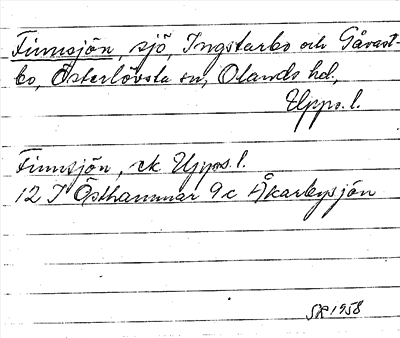 Finnsjön, sjö, Ingstarbo och Gåvast-
bo, Österlövsta sn, Olands hd,
Upps. l.
Finnsjön, ek. Upps. l.
12 I Östhammar 9 c Åkarbysjön
1958